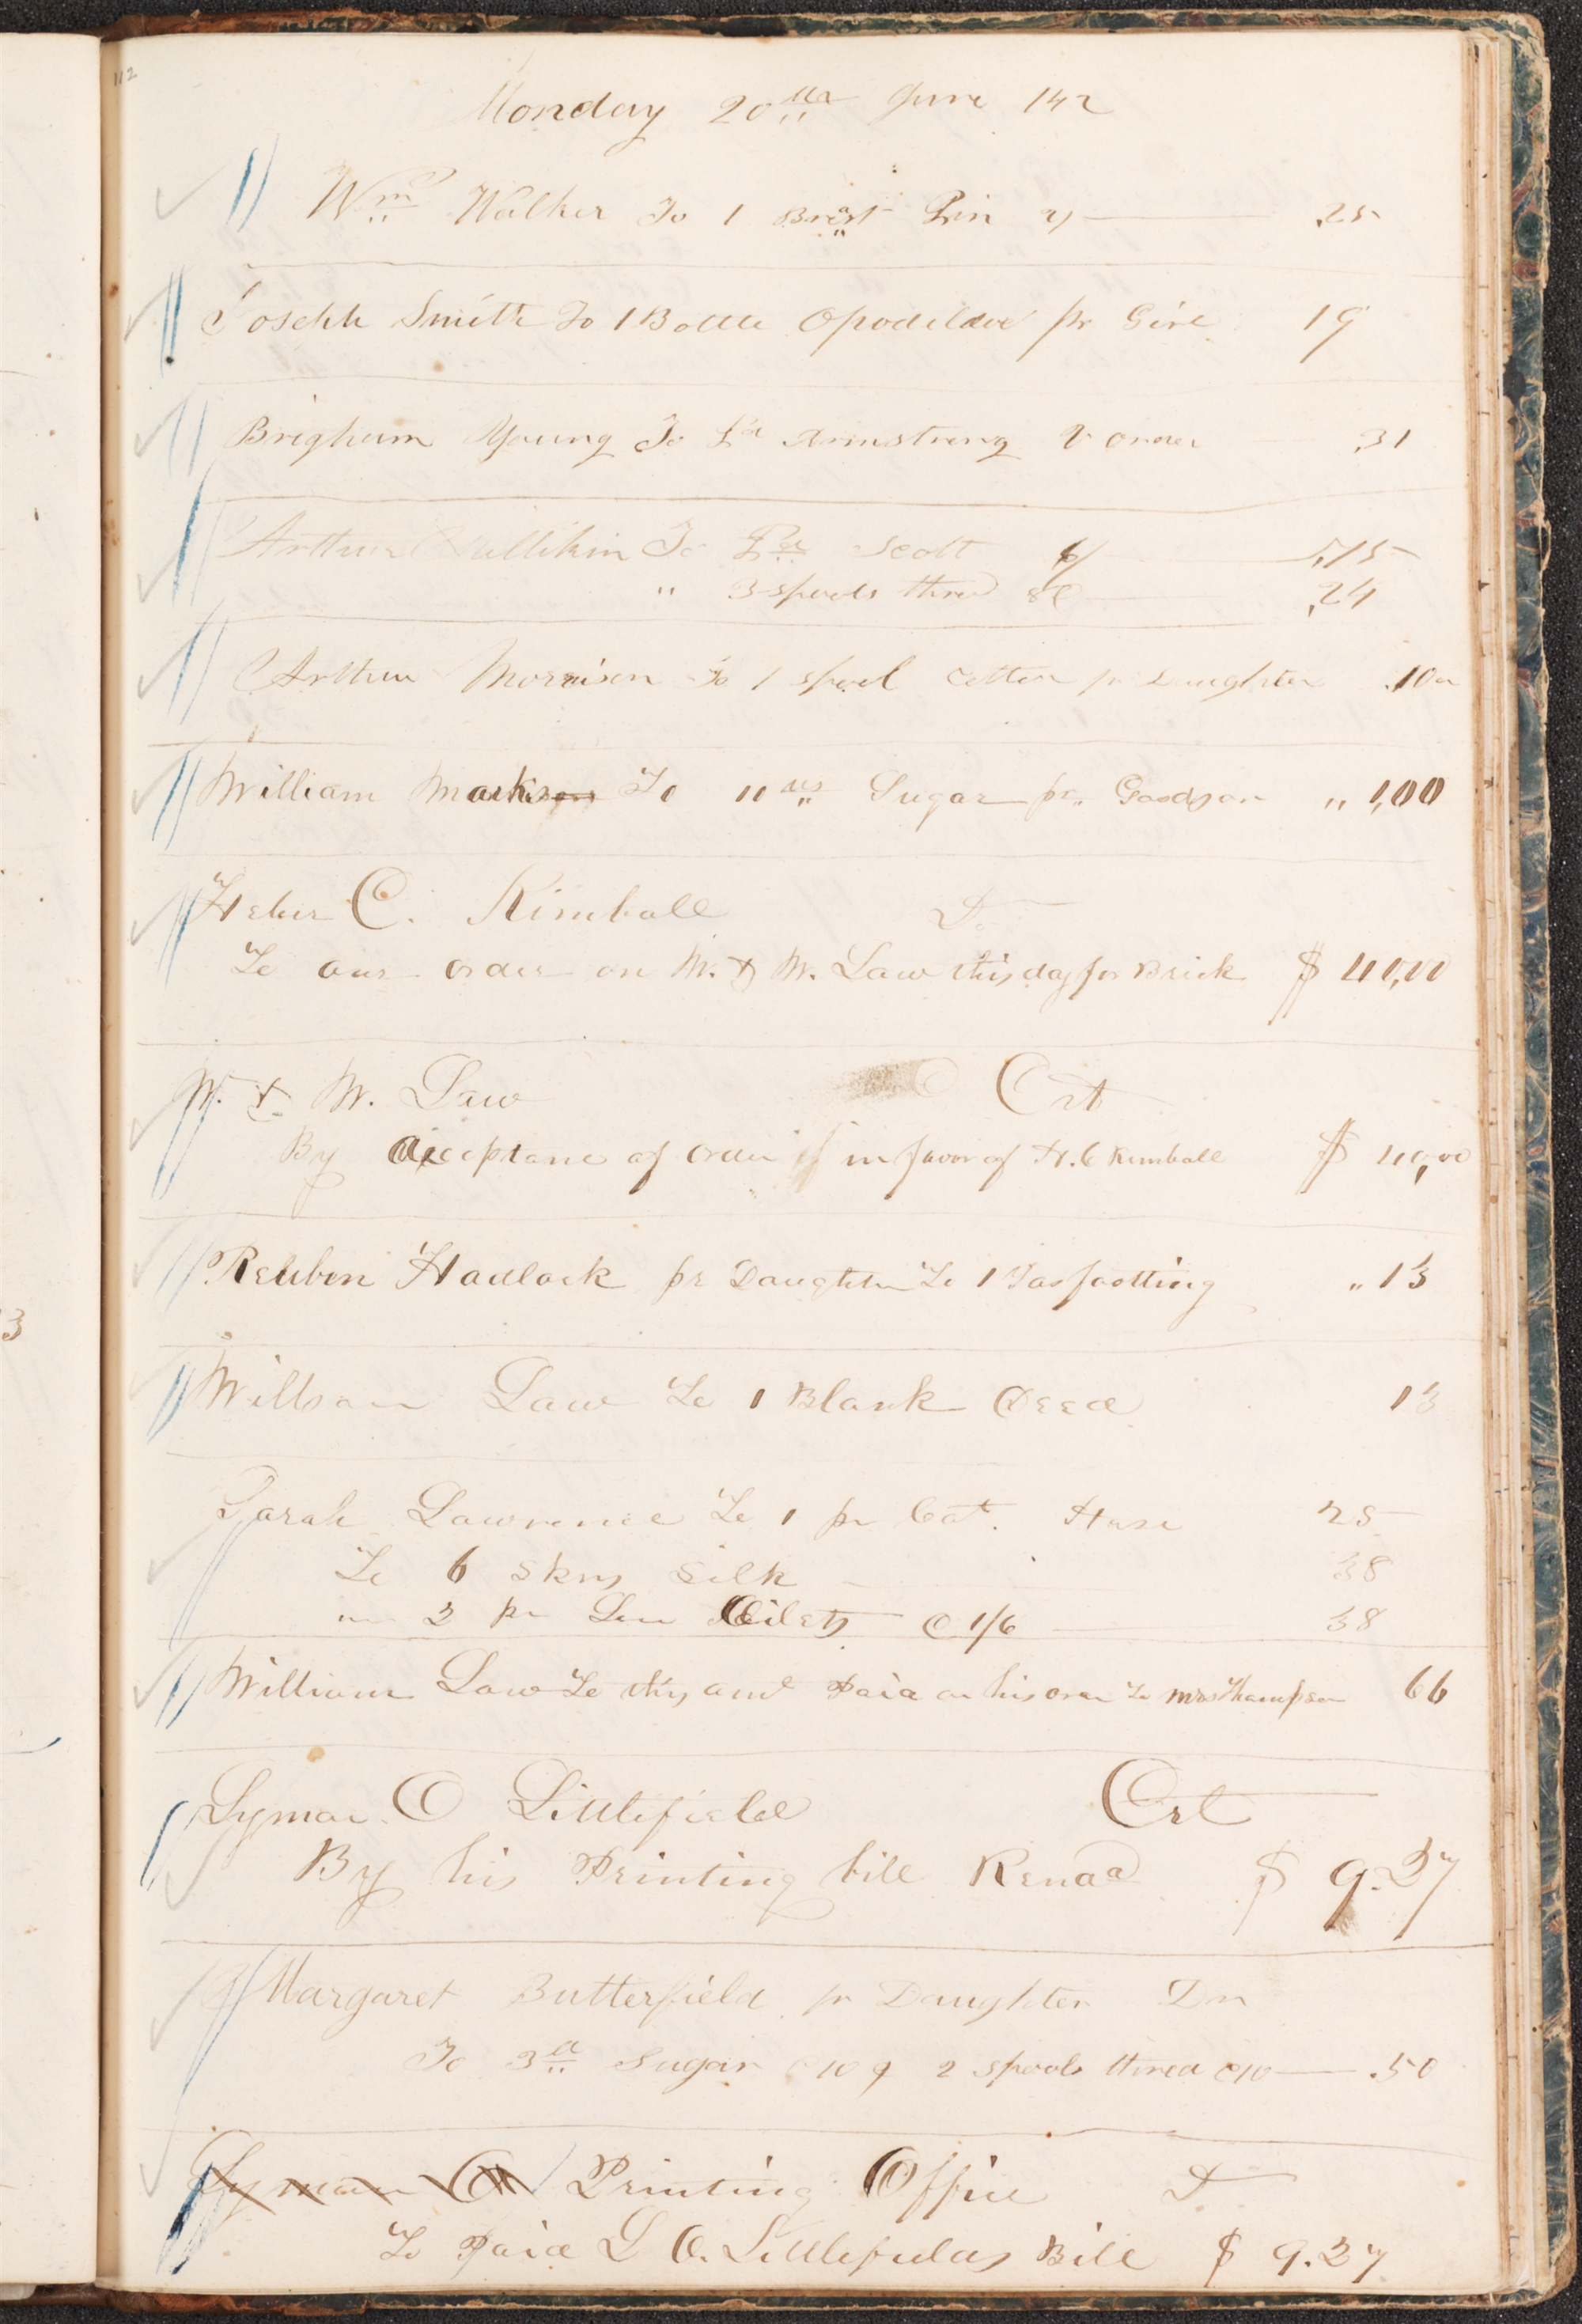 112
Monday 20th June 142
Wm Walker To 1 Brest Pin 2/ .25
Joseph Smith To 1 Bottle Opodildoc pr Girl 19
Brigham Young To Pd Armstrong order .31
Arthur Millikin To Pd Scott 6/ .75
" 3 spools thred 8c .24
Arthur Morrison To 1 spool Cotton pr Daughter .10
William Marks To 11 lbs Sugar pr. Goodson " 1,00
Heber C. Kimball Dr
To our order on W. & W. Law this day for Brick $ 40,00
W. & W. Law Crt
By acceptance of order in favor of H. C Kimball $ 40,00
Reuben Hadlock pr Daughter To 1 " 13
Willson Law To 1 Blank Deed 13
Sarah Lawrence To 1 pr Cot. Hose 25
To 6 Skns Silk 38
" 2 pr @ 1/6 38
William Law To this amt Paid on his order to Mrs Thompson 66
Lyman O Littlefield Crt
By his Printing bill Rendd $ 9.27
Margaret Butterfield pr Daughter Dr
To 3 lb Sugar @ 10 & 2 spools thred @10 .50
Lyman O Printing Office Dr
To Paid L O. Littlefields Bill $ 9.27